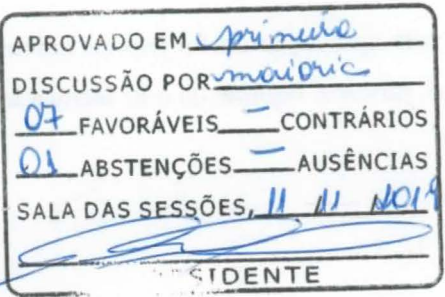 APROVADO EM primeira
DISCUSSÃO POR maioria
07 FAVORÁVEIS — CONTRÁRIOS
01 ABSTENÇÕES — AUSÊNCIAS
SALA DAS SESSÕES, 11 11 2019
SIDENTE